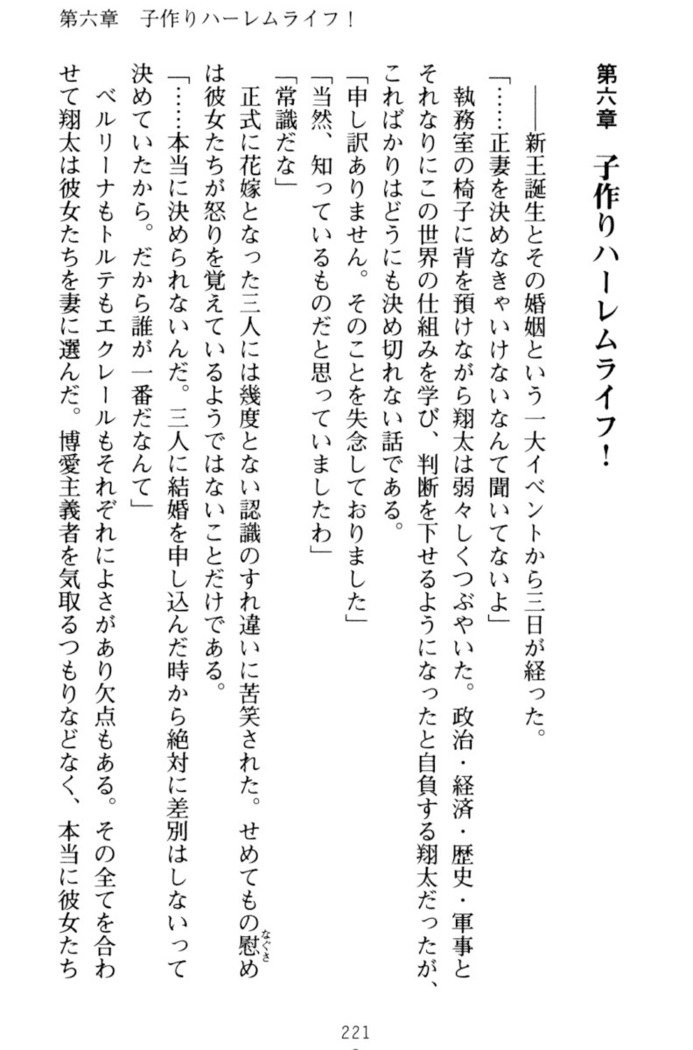 第六章　子作りハーレムライフ！
第六章　子作りハーレムライフ！
――新王誕生とその婚姻という一大イベントから三日が経った。
「……正妻を決めなきゃいけないなんて聞いてないよ」
執務室の椅子に背を預けながら翔太は弱々しくつぶやいた。政治・経済・歴史・軍事と
それなりにこの世界の仕組みを学び、判断を下せるようになったと自負する翔太だったが、
こればかりはどうにも決め切れない話である。
「申し訳ありません。そのことを失念しておりました」
「当然、知っているものだと思っていましたわ」
「常識だな」
正式に花嫁となった三人には幾度とない認識のすれ違いに苦笑された。せめてもの慰め
なぐさ
は彼女たちが怒りを覚えているようではないことだけである。
「……本当に決められないんだ。三人に結婚を申し込んだ時から絶対に差別はしないって
決めていたから。だから誰が一番だなんて」
ベルリーナもトルテもエクレールもそれぞれによさがあり欠点もある。その全てを合わ
せて翔太は彼女たちを妻に選んだ。博愛主義者を気取るつもりなどなく、本当に彼女たち
221